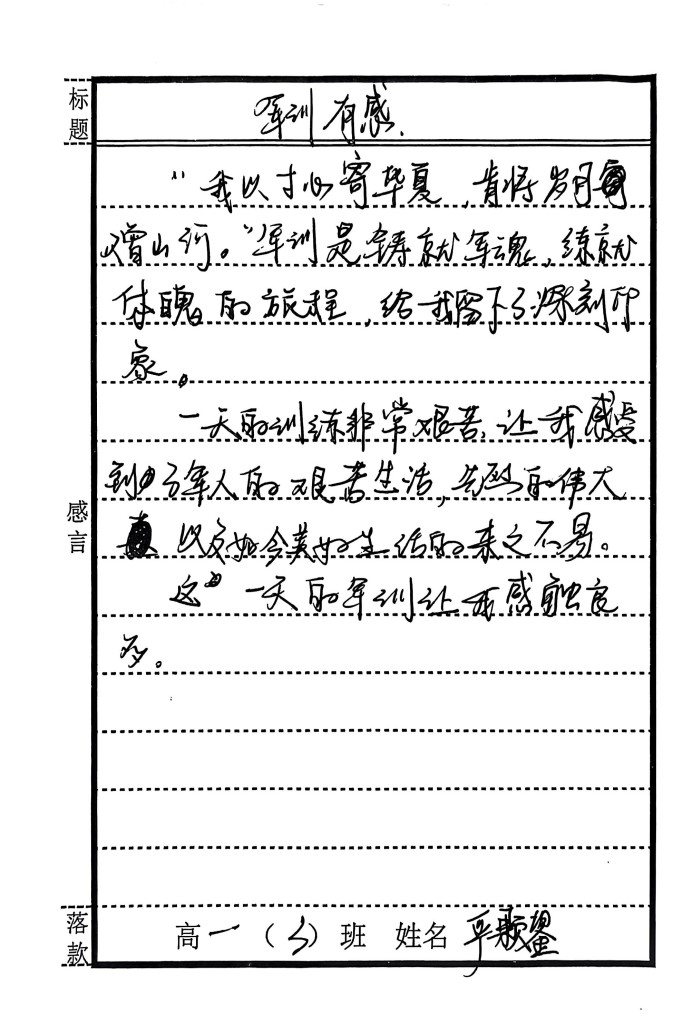 标题
军训有感.
“我以寸心寄华夏，肯将岁月
赠山河。”军训是铸就军魂，练就
体魄的旅程，给我留下了深刻印
象。
一天的训练非常艰苦，让我感受
到了军人的艰苦生活，先烈的伟大
感言
以及如今美好生活的来之不易。
这一天的军训让我感触良
多。
落款
高一（3）班 姓名